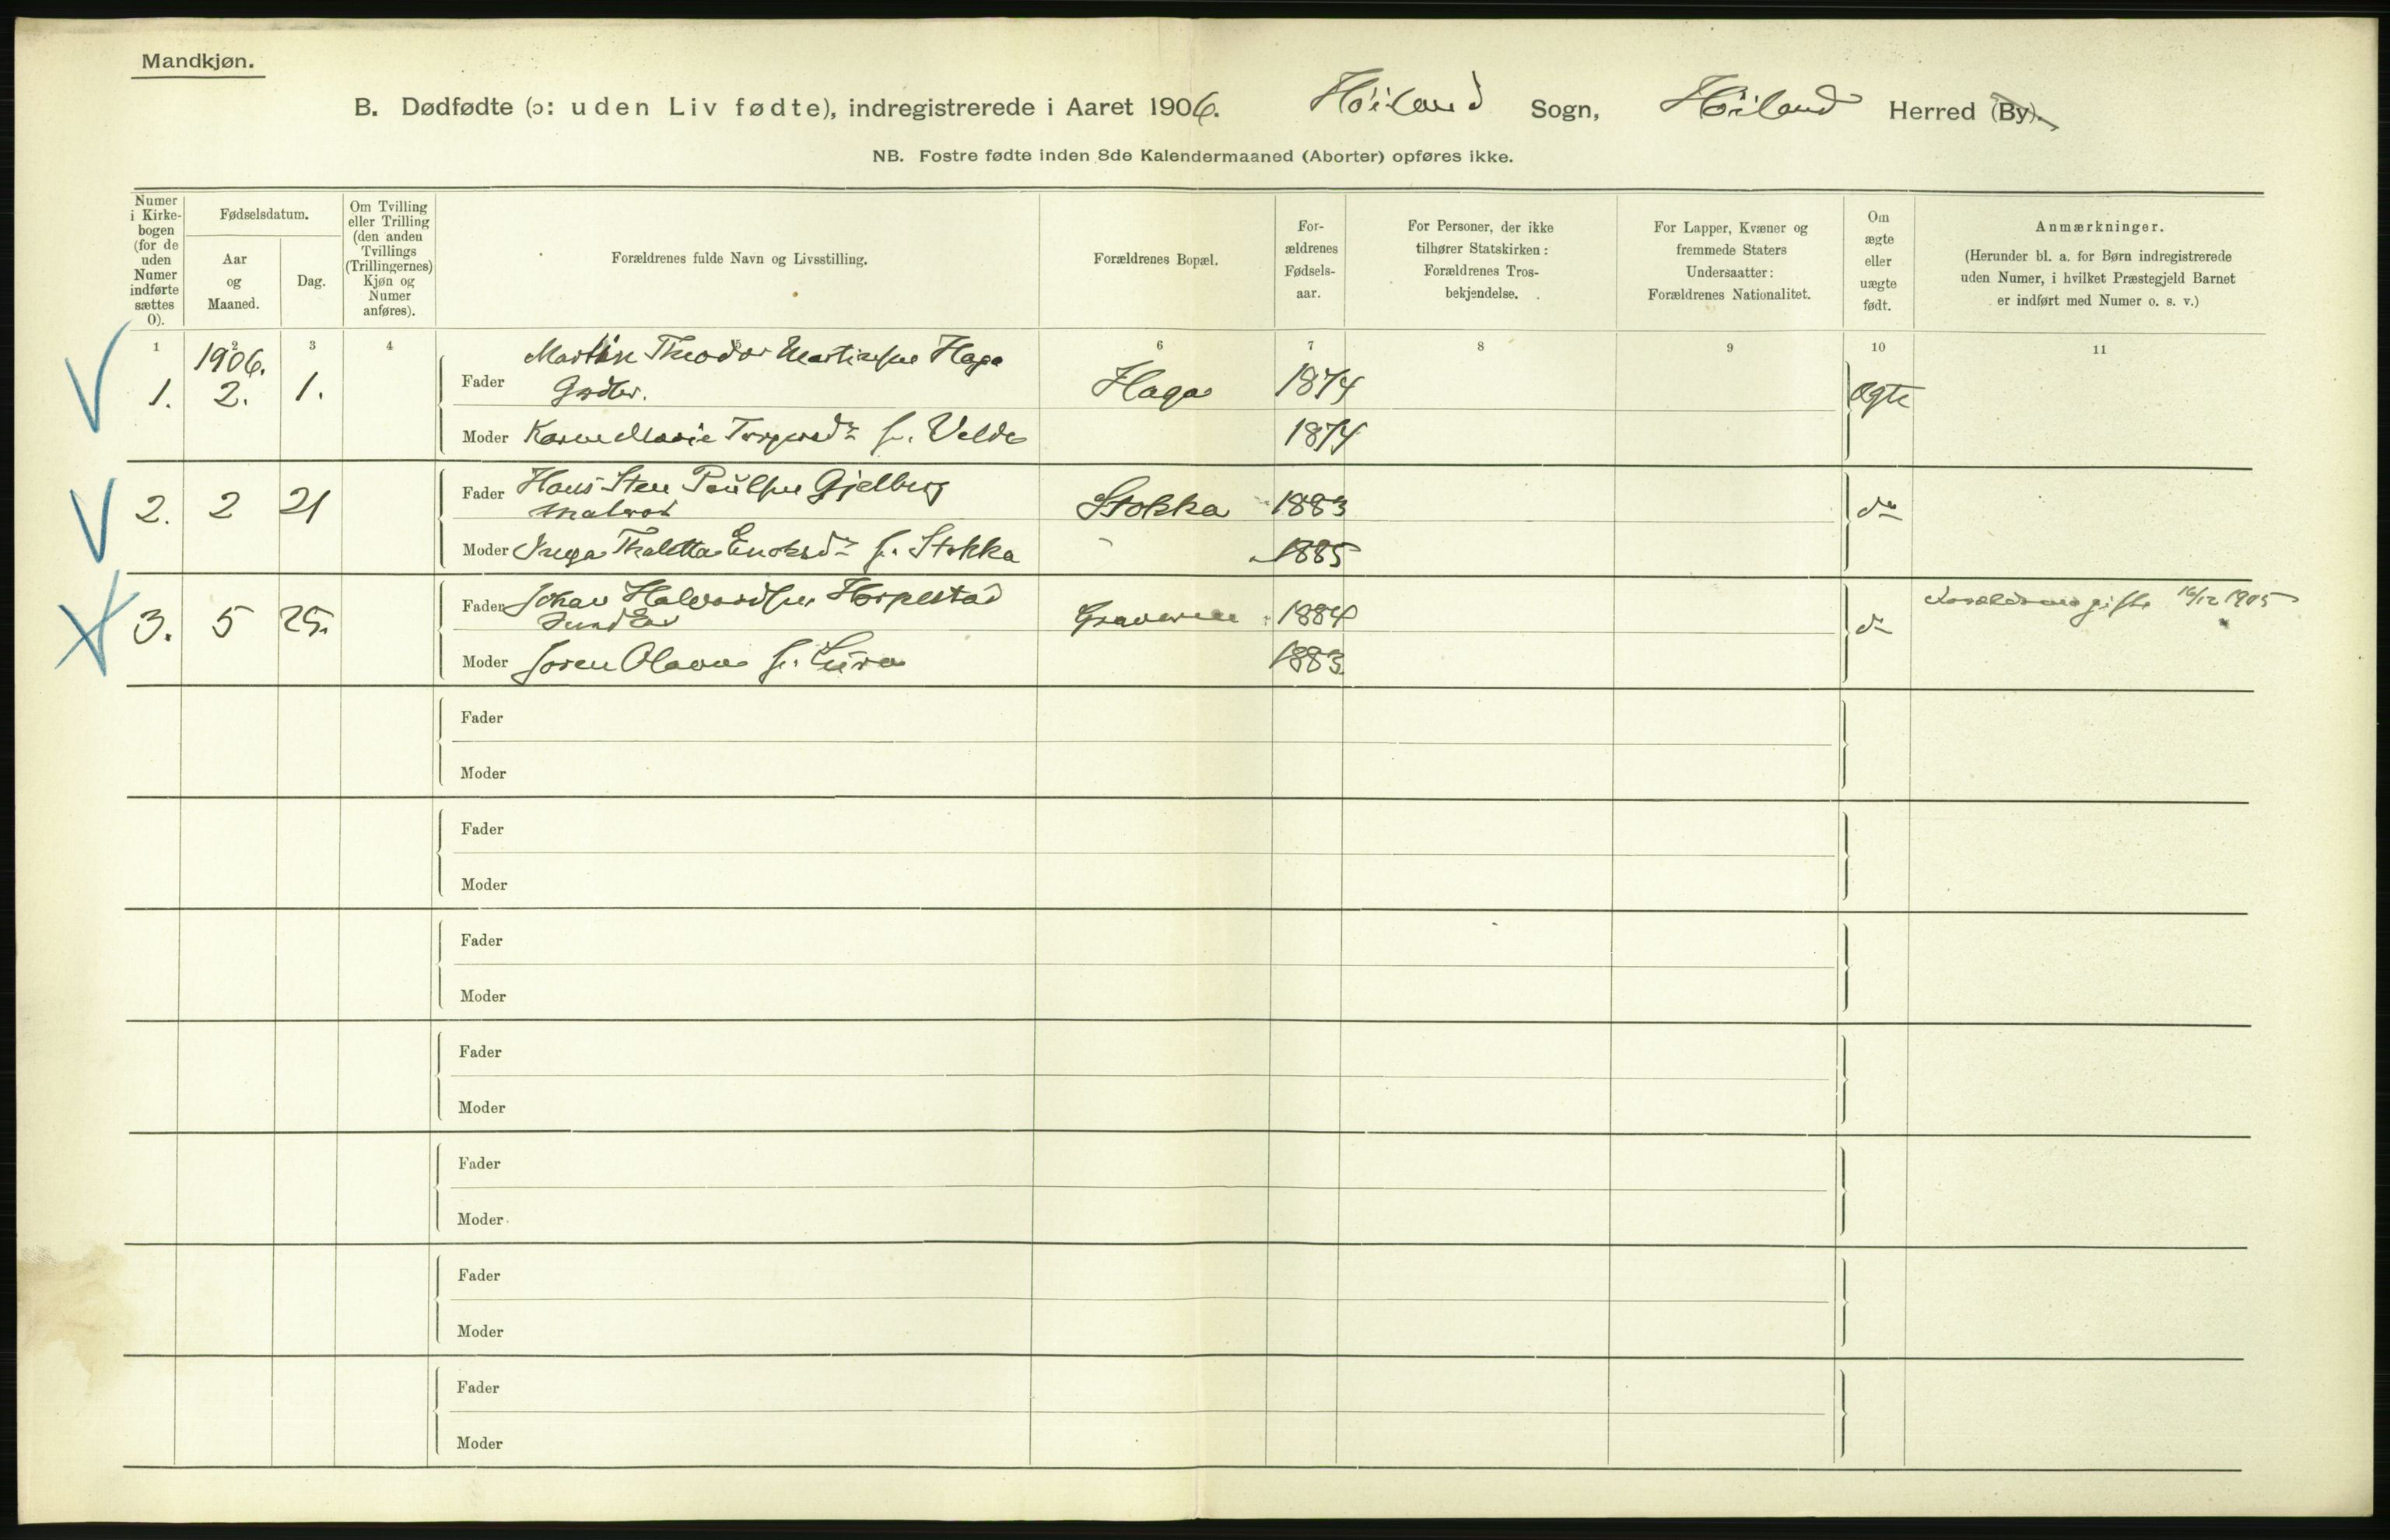 Mandkjøn.
B. Dødfødte (ɔ: uden Liv fødte), indregistrerede i Aaret 1906. Höiland Sogn, Höiland Herred (By).
NB. Fostre fødte inden 8de Kalendermaaned (Aborter) opføres ikke.
Numer i Kirke-bogen (for de uden Numer indførte sættes 0).
Fødselsdatum.
Aar og Maaned.
Dag.
Om Tvilling eller Trilling (den anden Tvillings (Trillingernes) Kjøn og Numer anføres).
Forældrenes fulde Navn og Livsstilling.
Forældrenes Bopæl.
For-ældrenes Fødsels-aar.
For Personer, der ikke tilhører Statskirken: Forældrenes Tros-bekjendelse.
For Lapper, Kvæner og fremmede Staters Undersaatter: Forældrenes Nationalitet.
Om ægte eller uægte født.
Anmærkninger.
(Herunder bl. a. for Børn indregistrerede uden Numer, i hvilket Præstegjeld Barnet er indført med Numer o. s. v.)
1 2 3 4 5 6 7 8 9 10 11
1906.
Martin Theodor Martinsen Haga
1. 2. 1. Fader Grdbr. Haga 1874 Ægte
Moder Karen Marie Torgersdr f. Velde 1874
Fader Hans Sten Paulsen Gjelberg
2. 2 21 Stokka 1883 do
Moder Inga Thaletta Enoksdr f. Stokka 1885
Fader Johan Halvardsen Horpestad Forældrene gifte 16/12 1905
3. 5 25. Graveren 1884 do
Moder Soren Olava f. Lura 1883
Fader
Moder
Fader
Moder
Fader
Moder
Fader
Moder
Fader
Moder
Fader
Moder
Fader
Moder